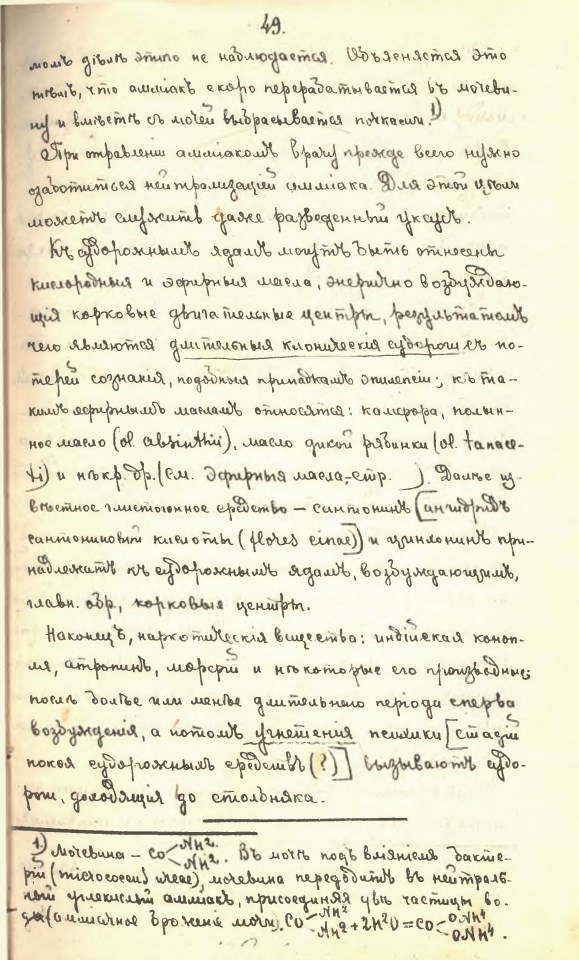 49.
момъ дѣлѣ этого не наблюдается. Объясняется это
тѣмъ, что амміакъ скоро перерабатывается въ мочеви-
ну и вмѣстѣ съ мочей выбрасывается почками.¹)
При отравленіи амміакомъ врачу прежде всего нужно
озаботиться нейтрализаціей амміака. Для этой цѣли
можетъ служить даже разведенный уксусъ.
Къ судорожнымъ ядамъ могутъ быть отнесены
кислородныя и эфирныя масла, энергично возбуждаю-
щія корковые двигательные центры, результатомъ
чего являются длительныя клоническія судороги съ по-
терей сознанія, подобныя припадкамъ эпилепсіи; къ та-
кимъ эфирнымъ масламъ относятся: камфора, полын-
ное масло (ol. absinthii), масло дикой рябинки (ol. tanace-
ti) и нѣкр. др. (см. Эфирныя масла,-стр. ). Далѣе из-
вѣстное глистогонное средство – сантонинъ [ангидридъ
сантониновой кислоты (flores cinae)] и цинхонинъ при-
надлежатъ къ судорожнымъ ядамъ, возбуждающимъ,
главн. обр, корковые центры.
Наконецъ, наркотическія вещества: индійская коноп-
ля, атропинъ, морфій и нѣкоторые его производные
послѣ болѣе или менѣе длительнаго періода сперва
возбужденія, а потомъ угнетенія психики [стадій
покоя судорожныхъ средствъ (?)] вызываютъ судо-
роги, доходящія до столбняка.
1) Мочевина – CO NH² NH². Въ мочѣ подъ вліяніемъ бакте-
рій (micrococcus ureae), мочевина переходитъ въ нейтраль-
ный углекислый амміакъ, присоединяя двѣ частицы во-
ды (амміачное броженіе мочи). CO NH² NH² + 2H²O = CO ONH⁴ ONH⁴.